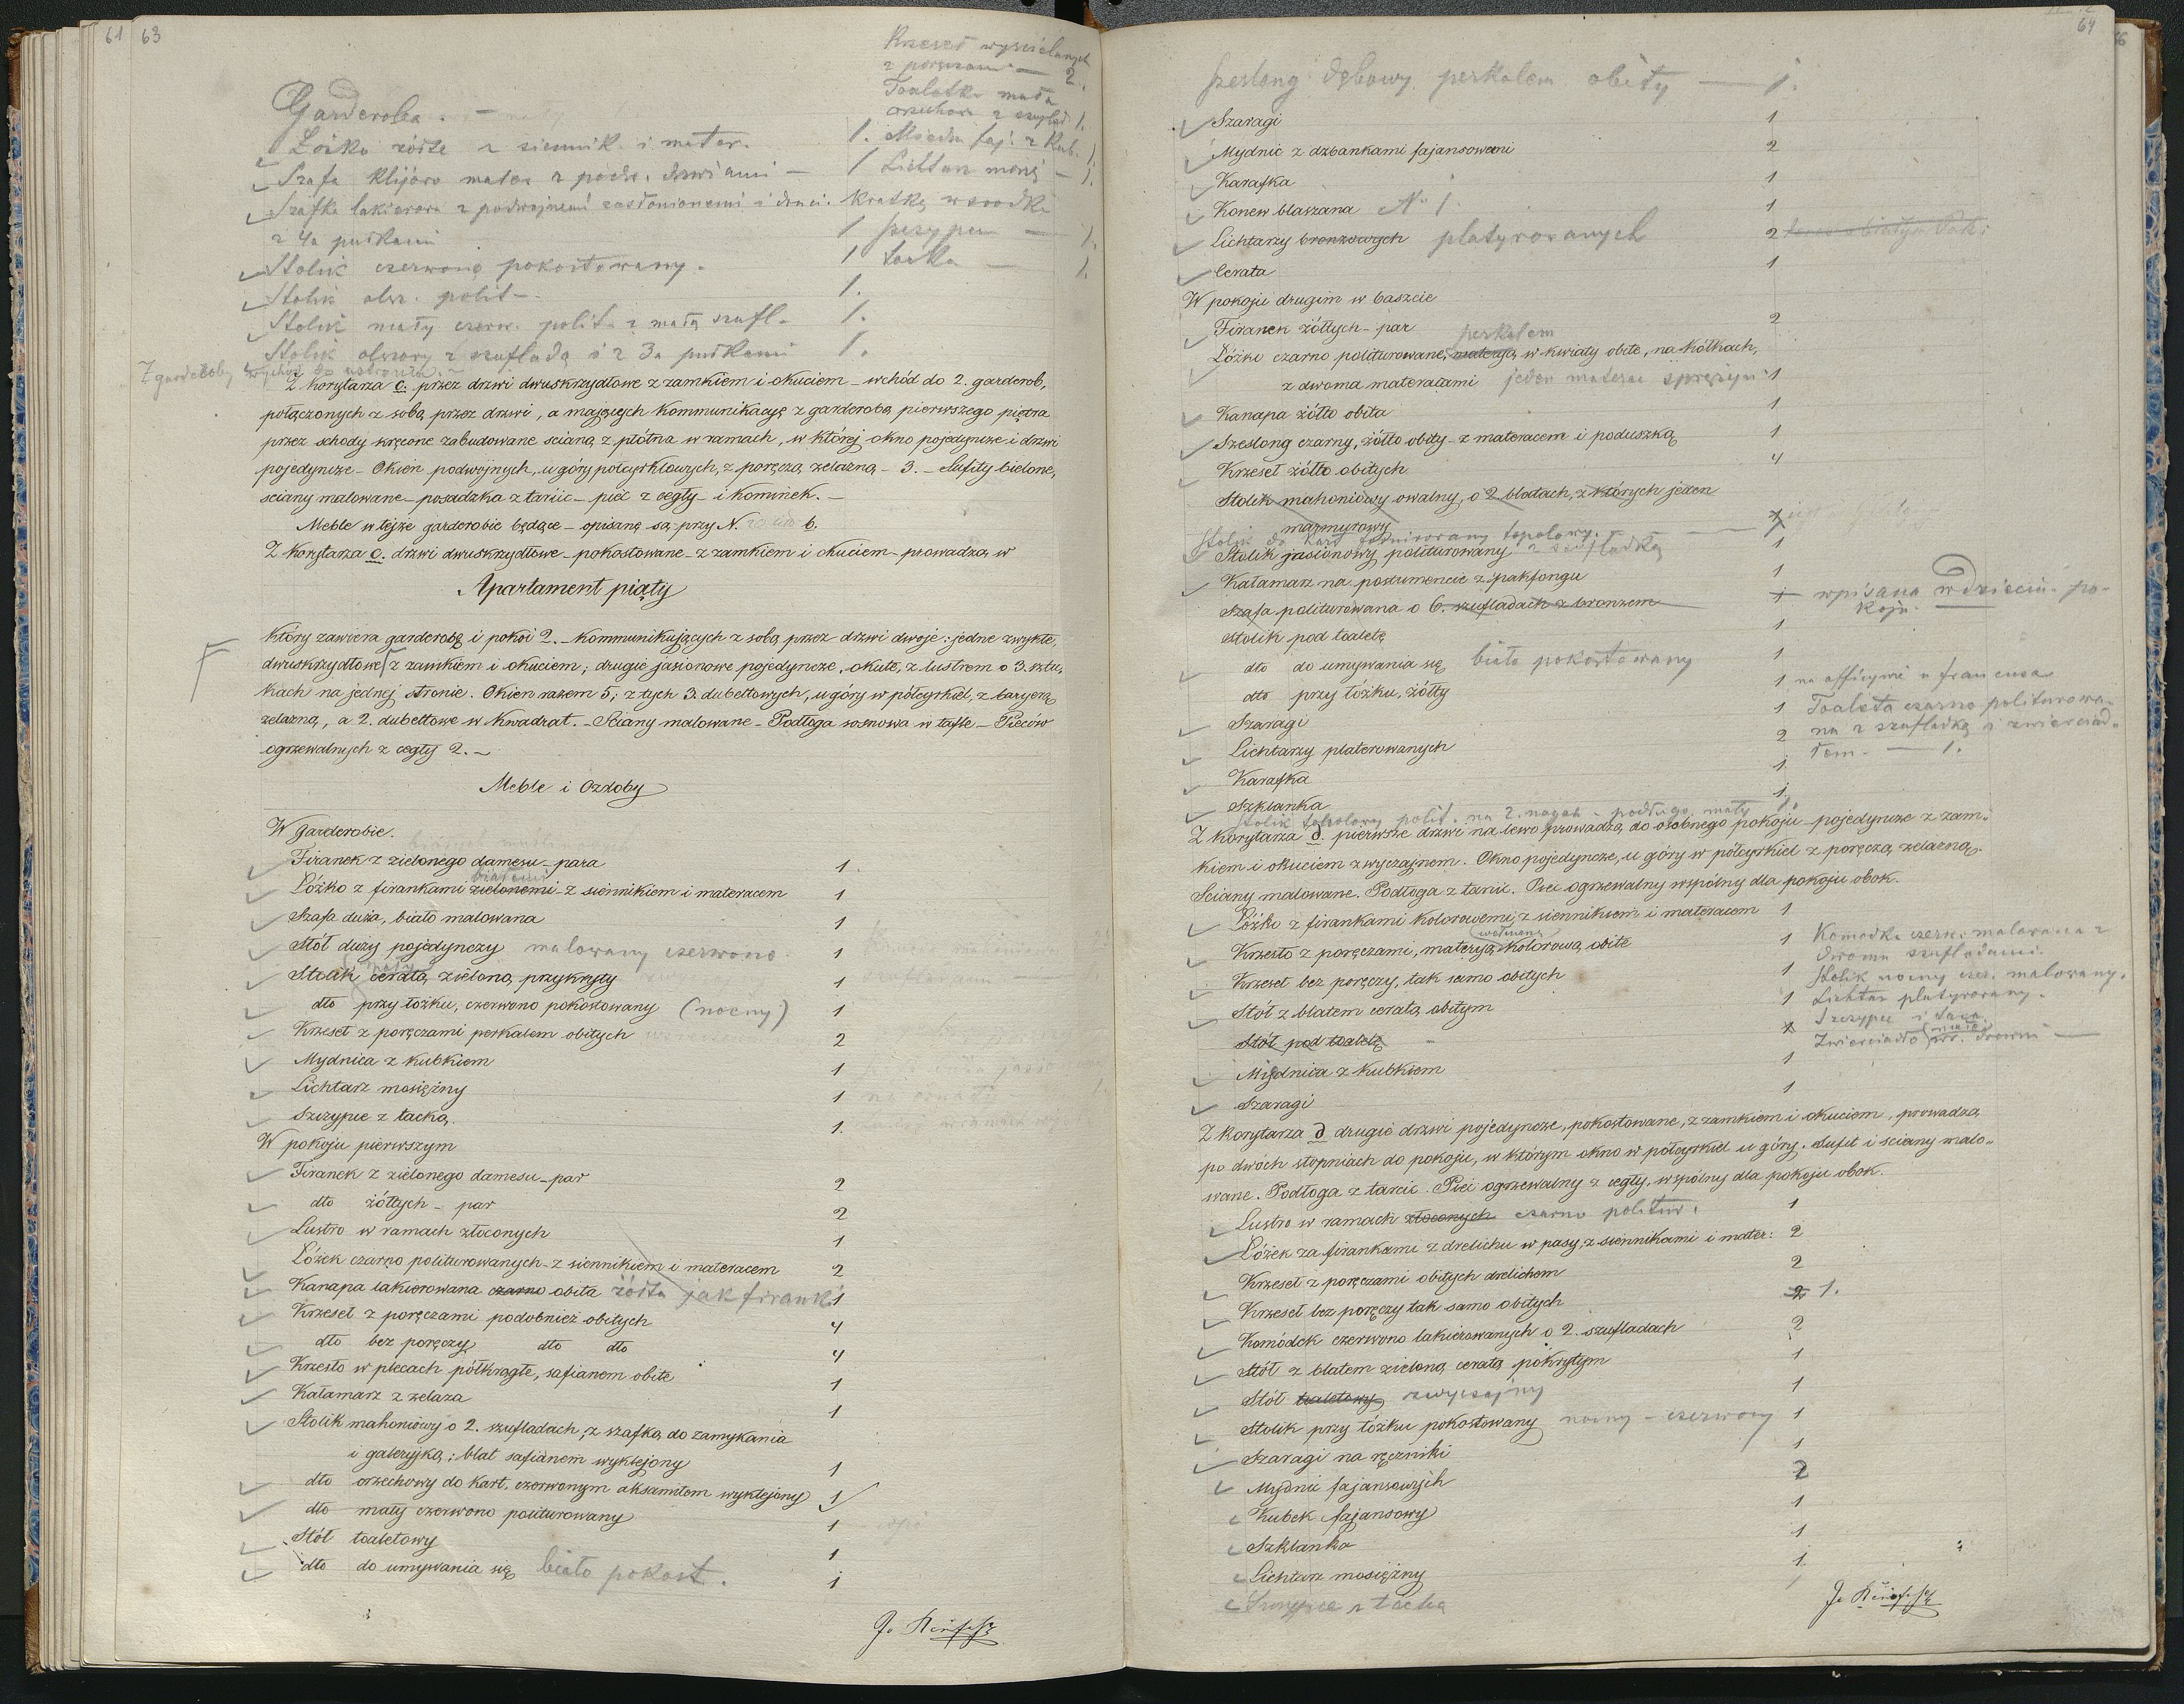 61 63
Krzeseł wyścielanych
z poręczami — 2.
Toaletka mała
orzechow. z szuflad. 1.
Garderoba. —
Łóżko żółte z siennik. i mater. 1.
Miedn. faj. z Kub. 1.
Szafa klijowo malow. z podw. drzwiami — 1
Lichtarz mosię. — 1.
Szafka lakierow. z podwojnemi zasłonionemi i druci. Kratką w środku
z 4a pułkami 1
szczypce — 1.
Stolik czerwono pokostowany. 1
tacka — 1.
Stolik olsz. polit. — 1.
Stolik mały czerw. polit. z małą szufl. 1.
Stolik olszowy z szufladą i z 3a pułkami 1.
Z garderoby wychód do ustronia. —
Z Korytarza c. przez drzwi dwuskrzydłowe z zamkiem i okuciem — wchód do 2. garderob,
połączonych z sobą przez drzwi, a mających Kommunikacyę z garderobą pierwszego piętra
przez schody kręcone zabudowane scianą z płótna w ramach, w której okno pojedyncze i drzwi
pojedyncze — Okien podwójnych, u góry półcyrklowych, z poręczą żelazną — 3. — Sufity bielone,
sciany malowane — posadzka z tarcic — piec z cegły — i Kominek. —
Meble w tejże garderobie będące — opisane są przy N. 6.
Z Korytarza c. drzwi dwuskrzydłowe — pokostowane — z zamkiem i okuciem — prowadzą w
Apartament piąty
Który zawiera garderobę i pokoi 2. — Kommunikujących z sobą przez drzwi dwoje: jedne zwykłe,
dwuskrzydłowe z zamkiem i okuciem; drugie jasionowe pojedyncze, okute, z lustrem o 3. sztu-
kach na jednej stronie. Okien razem 5; z tych 3. dubeltowych, u góry w półcyrkiel, z baryerą
żelazną, a 2. dubeltowe w Kwadrat. — Sciany malowane — Podłoga sosnowa w tafle — Pieców
ogrzewalnych z cegły 2. —
Meble i Ozdoby
W Garderobie.
Firanek z zielonego damesu — para 1
białemi
Łóżko z firankami zielonemi — z siennikiem i materacem 1
Szafa duża, biało malowana 1
Stół duży pojedynczy malowany czerwono 1
mały
Stolik ceratą zieloną przykryty 1
dto przy łóżku, czerwono pokostowany (nocny) 1
Krzeseł z poręczami perkalem obitych 2
Mydnica z kubkiem 1
Lichtarz mosiężny 1
Szczypce z tacką 1.
W pokoju pierwszym
Firanek z zielonego damesu — par 2
dto żółtych — par 2
Lustro w ramach złoconych 1
Łóżek czarno politurowanych — z siennikiem i materacem 2
Kanapa lakierowana czarno obita żółta jak firanki 1
Krzeseł z poręczami podobnież obitych 4
dto bez poręczy dto dto 4
Krzesło w plecach półkrągłe, safianem obite 1
Kałamarz z żelaza 1
Stolik mahoniowy o 2. szufladach, z szafką do zamykania
i galeryjką; blat safianem wyklejony 1
dto orzechowy do kart, czerwonym aksamitem wyklejony 1
dto mały czerwono politurowany 1
Stół toaletowy 1
dto do umywania się biało pokost. 1
64
Szeslong dębowy perkalem obity — 1.
Szaragi 1
Mydnic z dzbankami fajansowemi 2
Karafka 1
Konew blaszana N. 1. 1
Lichtarzy bronzowych platyrowanych 2
Cerata 1
W pokoju drugim w baszcie
Firanek żółtych — par 2
perkalem
Łóżko czarno politurowane, materyą w kwiaty obite, na kółkach,
z dwoma materacami jeden materac sprężyn. 1
Kanapa żółto obita 1
Szeslong czarny, żółto obity — z materacem i poduszką 1
Krzeseł żółto obitych 4
Stolik mahoniowy owalny, o 2 blatach, z których jeden
marmurowy 1
Stolik do kart fornirowany topolowy. —
Stolik jasionowy politurowany z szufladką 1
Kałamarz na postumencie z pakfongu 1
Szafa politurowana o 6. szufladach z bronzem 1 wpisana w dziecin. po-
koju.
Stolik pod toaletę 1
dto do umywania się biało pokostowany 1
dto przy łóżku, żółty 1 na officynie u francuza
Szaragi 1
Toaleta czarno politurowa-
na z szufladką i zwierciad-
łem. — 1.
Lichtarzy platerowanych 2
Karafka 1
Szklanka 1
Stolik topolowy polit. na 2. nogach — podługo. mały 1
Z Korytarza d. pierwsze drzwi na lewo prowadzą do osobnego pokoju — pojedyncze z zam-
kiem i okuciem zwyczajnem. Okno pojedyncze, u góry w półcyrkiel z poręczą żelazną.
Sciany malowane. Podłoga z tarcic. Piec ogrzewalny wspólny dla pokoju obok.
Łóżko z firankami kolorowemi, z siennikiem i materacem 1
wełnianą
Krzesło z poręczami, materyą kolorową obite 1
Krzeseł bez poręczy, tak samo obitych 1
Stół z blatem ceratą obitym 1
Stół pod toaletę 1
Komodka czerw. malowana z
dwoma szufladami.
Stolik nocny czer. malowany.
Lichtarz platyrowany.
Szczypce i taca
Zwierciadło małe w r. drewni —
Miednica z kubkiem 1
Szaragi 1
Z Korytarza d drugie drzwi pojedyncze, pokostowane, z zamkiem i okuciem, prowadzą
po dwóch stopniach do pokoju, w którym okno w półcyrkiel u góry. Sufit i sciany malo-
wane. Podłoga z tarcic. Piec ogrzewalny z cegły, wspólny dla pokoju obok.
Lustro w ramach złoconych czarno politur. 1
Łóżek za firankami z drelichu w pasy, z siennikami i mater: 2
Krzeseł z poręczami obitych drelichem 2
Krzeseł bez poręczy tak samo obitych 2 1.
Komódek czerwono lakierowanych o 2. szufladach 2
Stół z blatem zieloną ceratą pokrytym 1
Stół toaletowy zwyczajny 1
Stolik przy łóżku pokostowany nocny — czerwony 1
Szaragi na ręczniki 1
Mydnic fajansowych 2
Kubek fajansowy 1
Szklanka 1
Lichtarz mosiężny 1
Szczypce z tacką